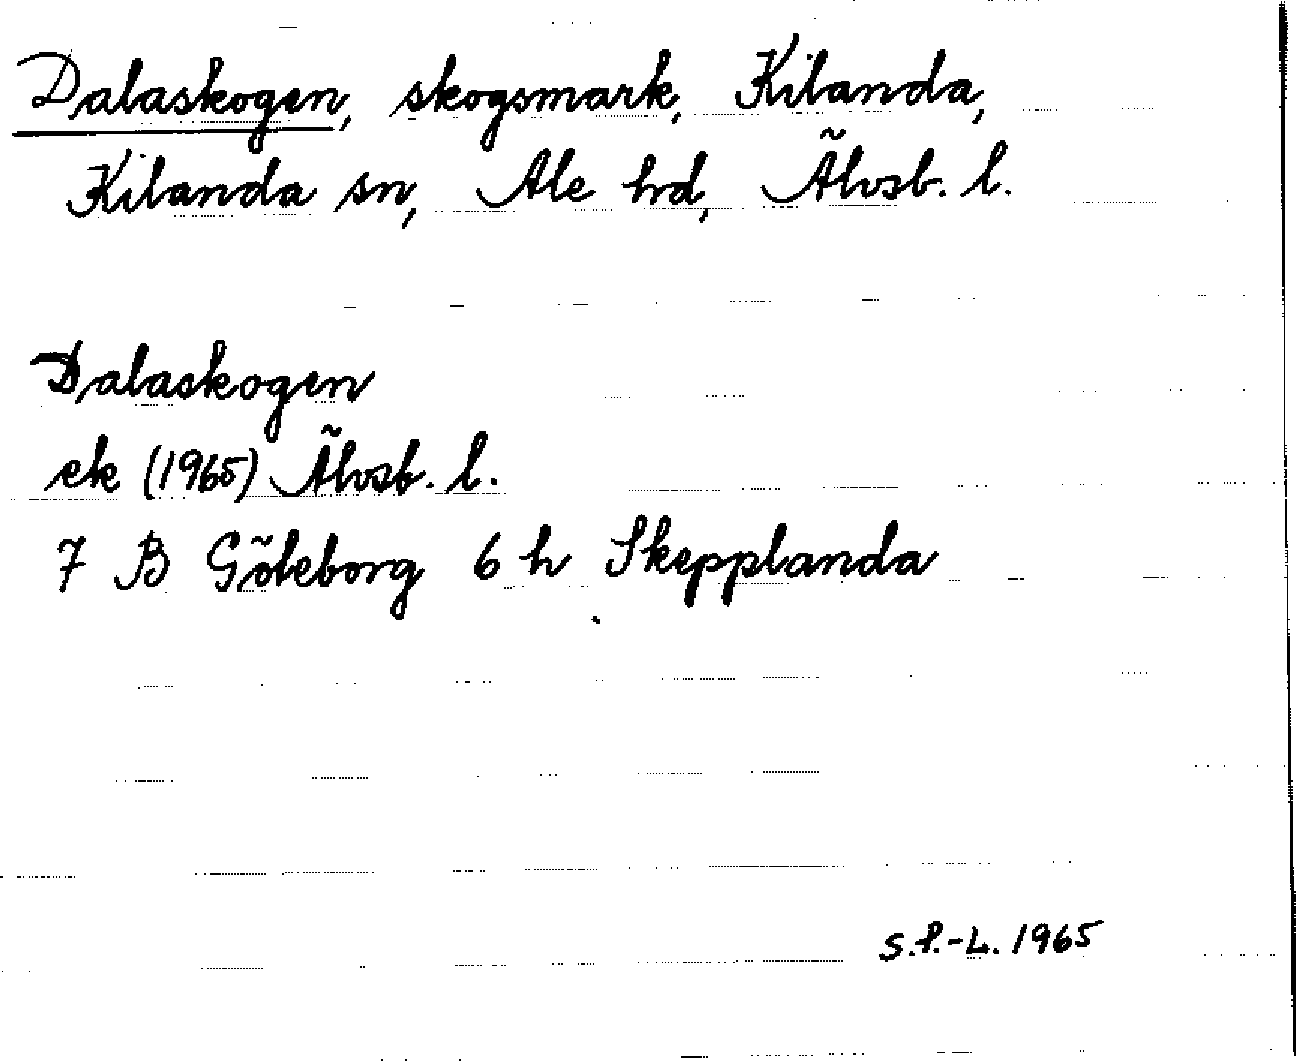 Dalaskogen, skogsmark, Kilanda,
Kilanda sn, Ale hd, Älvsb. l.
Dalaskogen
ek (1965) Älvsb. l.
7 B Göteborg 6 h Skepplanda
S.P.-L. 1965